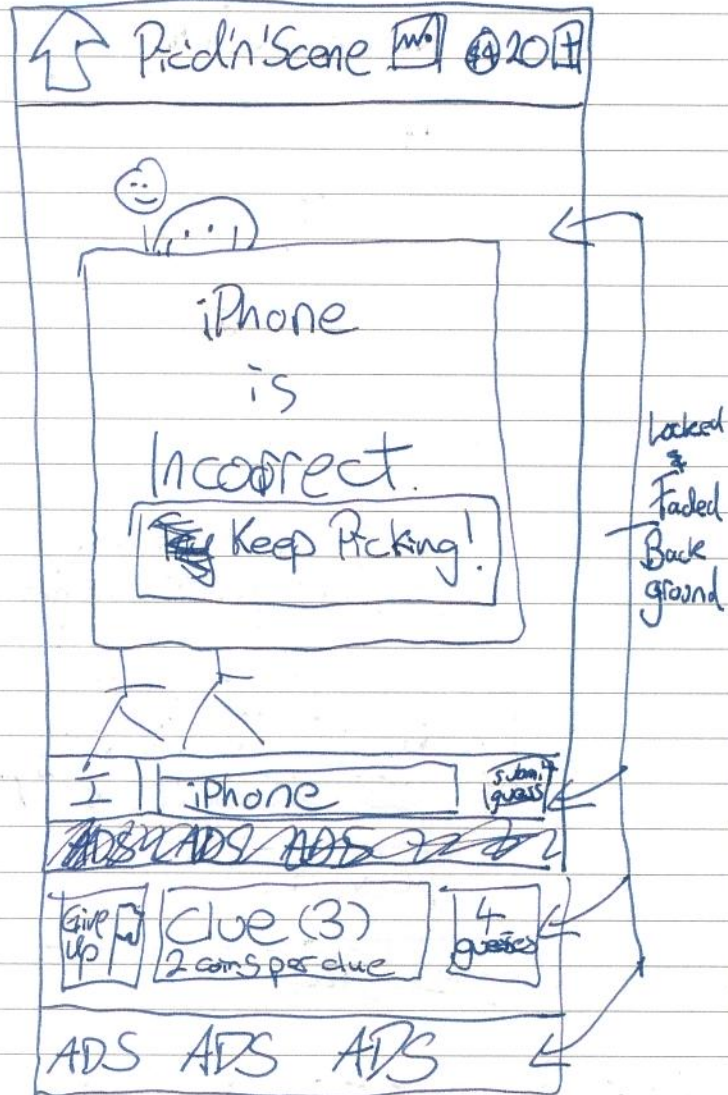 Pic'd'n'Scene 20 +
iPhone
is
Incorrect.
Keep Picking!
Locked
&
Faded
Back
ground
I iPhone submit
guess
ADS ADS ADS
Give
up
Clue (3)
2 coins per clue
4
guesses
ADS ADS ADS